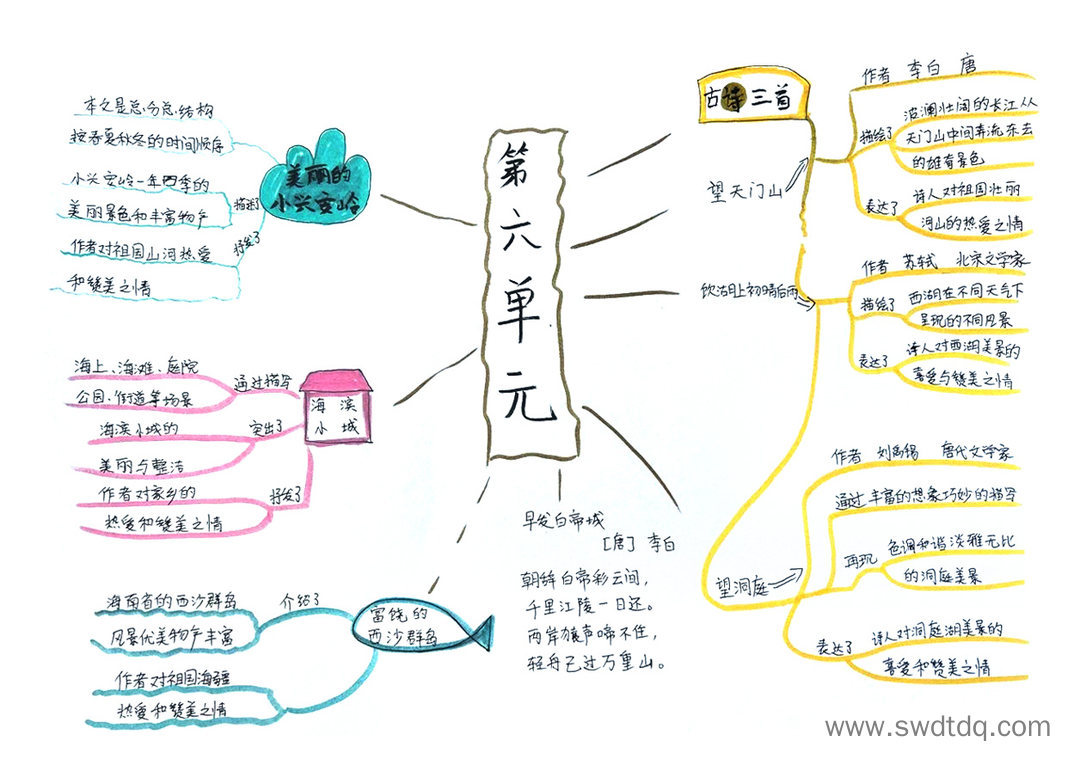 第六单元
古诗三首
望天门山
作者 李白 唐
描绘了
波澜壮阔的长江从
天门山中间奔流东去
的雄奇景色
表达了
诗人对祖国壮丽
河山的热爱之情
饮湖上初晴后雨
作者 苏轼 北宋文学家
描绘了
西湖在不同天气下
呈现的不同风景
表达了
诗人对西湖美景的
喜爱与赞美之情
望洞庭
作者 刘禹锡 唐代文学家
通过丰富的想象巧妙的描写
再现
色调和谐淡雅无比
的洞庭美景
表达了
诗人对洞庭湖美景的
喜爱和赞美之情
美丽的
小兴安岭
本文是总分总结构
按春夏秋冬的时间顺序
描述了
小兴安岭一年四季的
美丽景色和丰富物产
抒发了
作者对祖国山河热爱
和赞美之情
海滨
小城
通过描写
海上、海滩、庭院
公园、街道等场景
突出了
海滨小城的
美丽与整洁
抒发了
作者对家乡的
热爱和赞美之情
富饶的
西沙群岛
介绍了
海南省的西沙群岛
风景优美物产丰富
作者对祖国海疆
热爱和赞美之情
早发白帝城
[唐] 李白
朝辞白帝彩云间，
千里江陵一日还。
两岸猿声啼不住，
轻舟已过万重山。
www.swdtdq.com